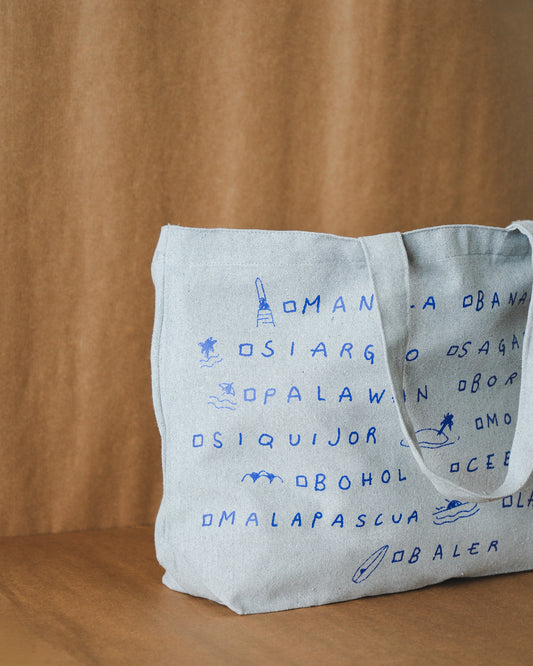 □MAN A □BANA
□SIARG O □SAGA
□PALAW N □BOR
□SIQUIJOR □MO
□BOHOL □CEB
□MALAPASCUA □LA
□BALER